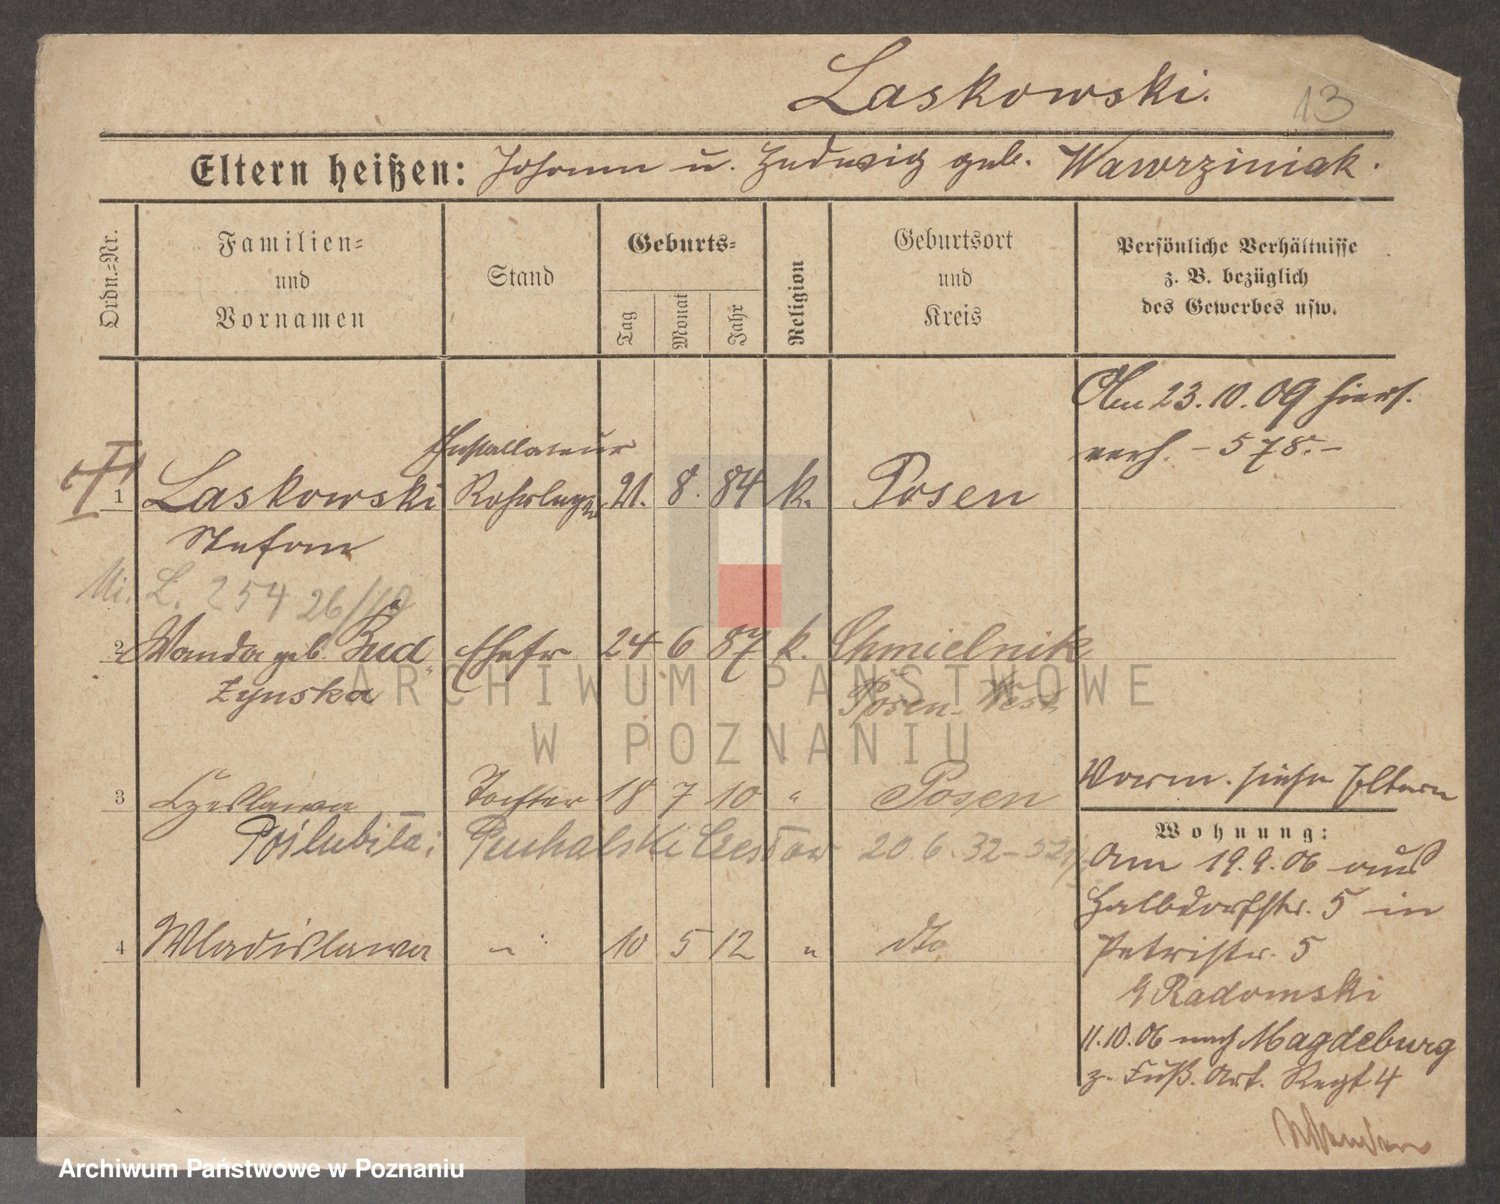 Laskowski.
13
Eltern heißen: Johann u. Hedwig geb. Wawrziniak.
Ordn.-Nr.
Familien-
und
Vornamen
Stand
Geburts-
Tag
Monat
Jahr
Religion
Geburtsort
und
Kreis
Persönliche Verhältnisse
z. B. bezüglich
des Gewerbes usw.
Am 23.10.09 hiers.
verh. - 578.-
Installateur
1 Laskowski Rohrleger 21. 8. 84 k. Posen
Stefan
L. 254 26/
2 Wanda geb. Bud Ehefr 24 6 87 k. Chmielnik
zynska Posen-West
3 Czeslawa Tochter 18 7 10 " Posen
Vorm. siehe Eltern
Poślubiła: Puchalski Czesław 20.6.32-52
Wohnung:
Am 19.9.06 aus
Halbdorfstr. 5 in
4 Wladislawa " 10 5 12 " dto.
Petristr. 5
Radomski
11.10.06 nach Magdeburg
z. Fuß. Art. Regt 4
ARCHIWUM PAŃSTWOWE
W POZNANIU
Archiwum Państwowe w Poznaniu